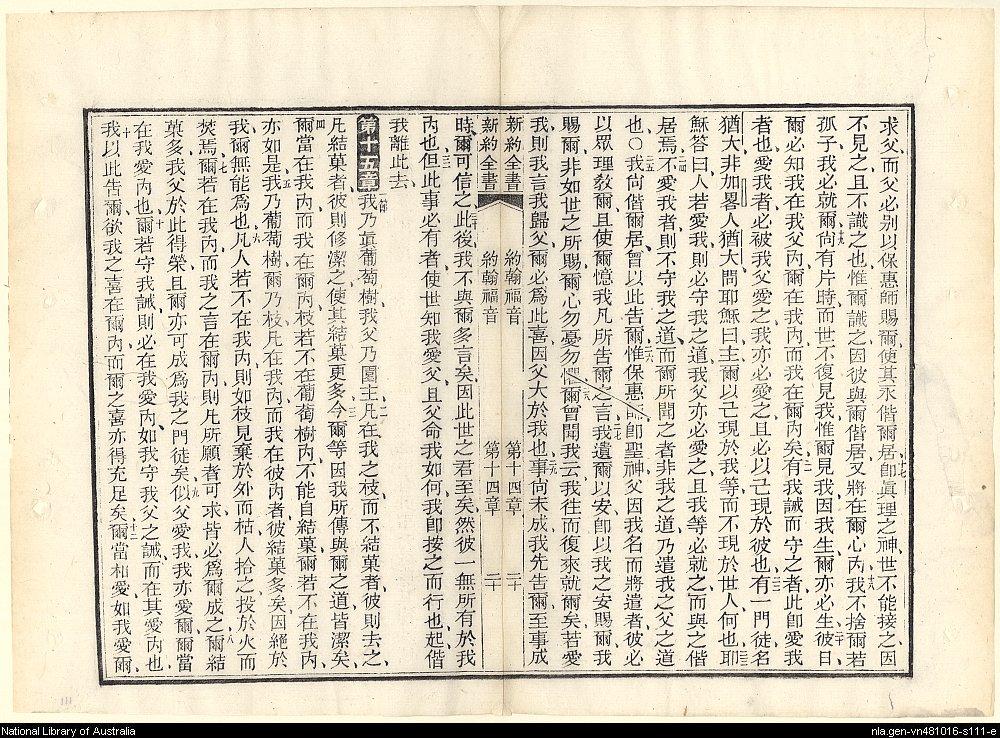 求父而父必别以保惠師賜爾使其永偕爾居卽眞理之神世不能接之因
不見之且不識之也惟爾識之因彼與爾偕居又將在爾心內我不捨爾若
孤子我必就爾尙有片時而世不復見我惟爾見我因我生爾亦必生彼日
爾必知我在我父內爾在我內而我在爾內矣有我誡而守之者此卽愛我
者也愛我者必被我父愛之我亦必愛之且必以己現於彼也有一門徒名
猶大非加畧人猶大問耶穌曰主爾以己現於我等而不現於世人何也耶
穌答曰人若愛我則必守我之道我父亦必愛之且我等必就之而與之偕
居焉不愛我者則不守我之道而爾所聞之者非我之道乃遣我之父之道
也○我尙偕爾居曾以此告爾惟保惠師卽聖神父因我名而將遣者彼必
以眾理敎爾且使爾憶我凡所告爾之言我遺爾以安卽以我之安賜爾我
賜爾非如世之所賜爾心勿憂勿懼爾曾聞我云我往而復來就爾矣若愛
我則我言我歸父爾必爲此喜因父大於我也事尙未成我先告爾至事成
新約全書 約翰福音 第十四章 二十
新約全書 約翰福音 第十四章 二十
時爾可信之此後我不與爾多言矣因此世之君至矣然彼一無所有於我
內也但此事必有者使世知我愛父且父命我如何我卽按之而行也起偕
我離此去
第十五章 一節我乃眞葡萄樹我父乃園主凡在我之枝而不結菓者彼則去之
凡結菓者彼則修潔之使其結菓更多今爾等因我所傳與爾之道皆潔矣
爾當在我內而我在爾內枝若不在葡萄樹內不能自結菓爾若不在我內
亦如是我乃葡萄樹爾乃枝凡在我內而我在彼內者彼結菓多矣因絕於
我爾無能爲也凡人若不在我內則如枝見棄於外而枯人拾之投於火而
焚焉爾若在我內而我之言在爾內則凡所願者可求皆必爲爾成之爾結
菓多我父於此得榮且爾亦可成爲我之門徒矣似父愛我我亦愛爾爾當
在我愛內也爾若守我誡則必在我愛內如我守我父之誡而在其愛內也
我以此告爾欲我之喜在爾內而爾之喜亦得充足矣爾當相愛如我愛爾
National Library of Australia
nla.gen-vn481016-s111-e